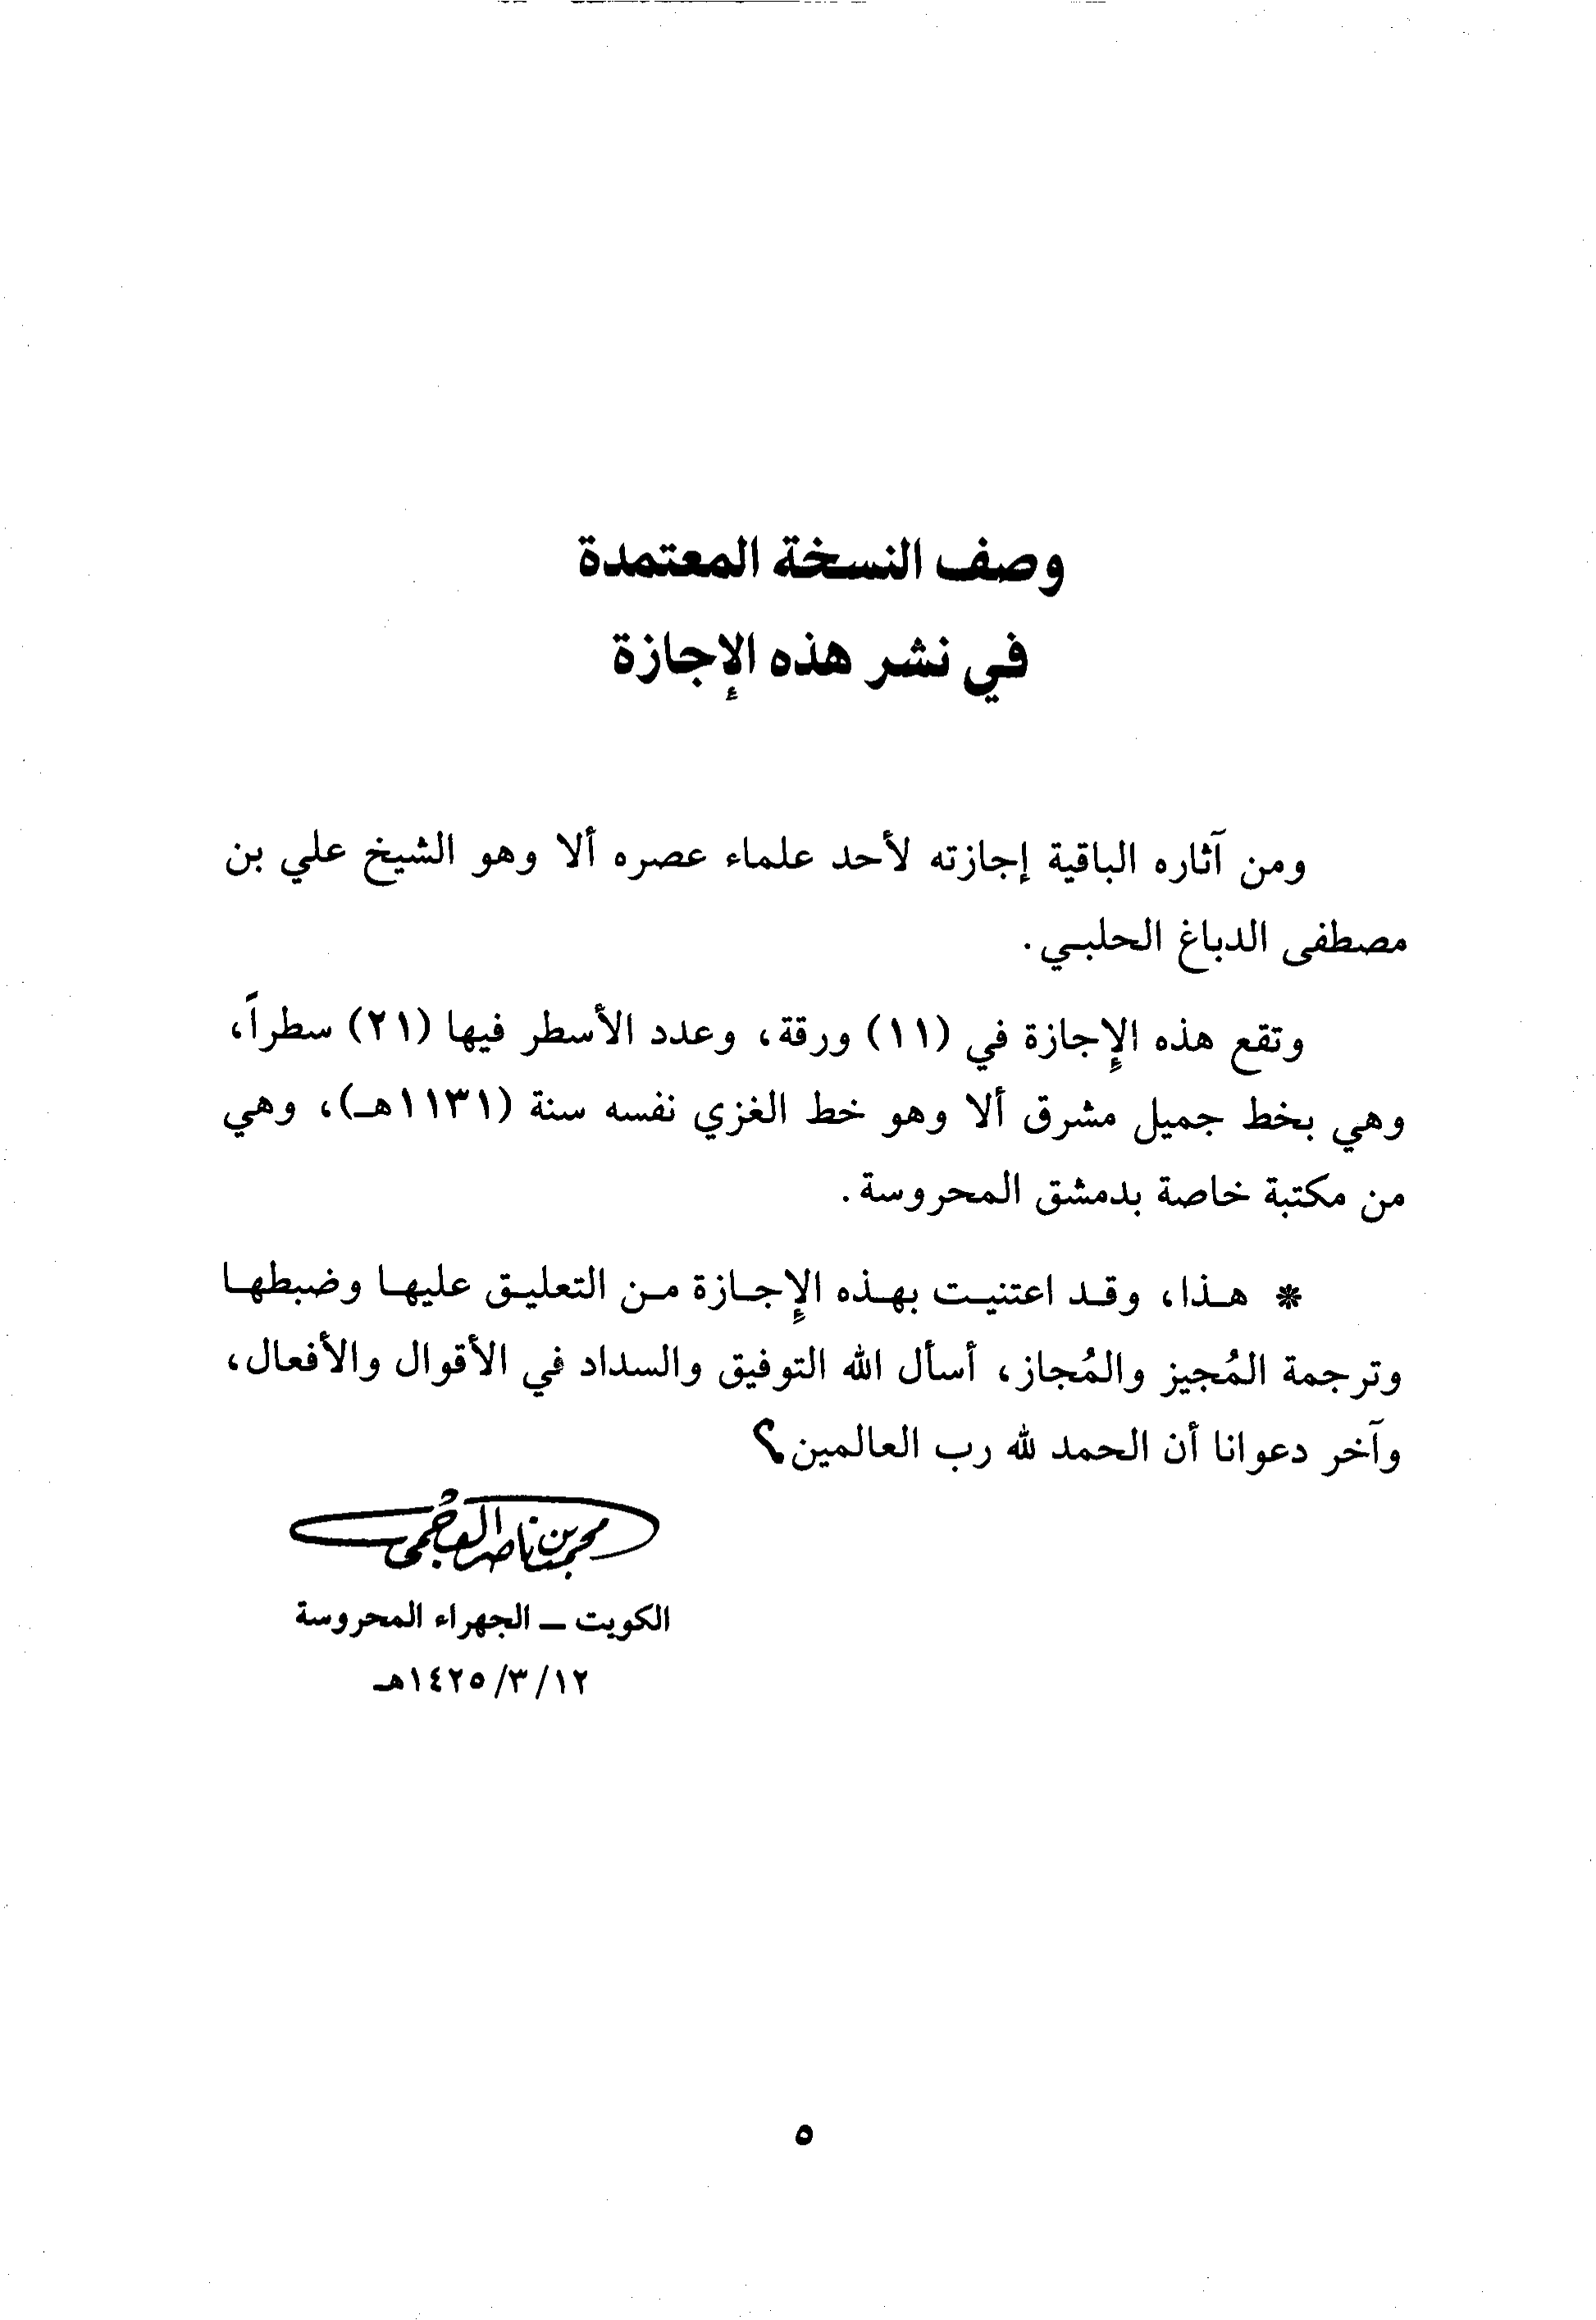 وصف النسخة المعتمدة
في نشر هذه الإجازة
ومن آثاره الباقية إجازته لأحد علماء عصره ألا وهو الشيخ علي بن
مصطفى الدباغ الحلبي.
وتقع هذه الإجازة في (١١) ورقة، وعدد الأسطر فيها (٢١) سطراً،
وهي بخط جميل مشرق ألا وهو خط الغزي نفسه سنة (١١٣١هـ)، وهي
من مكتبة خاصة بدمشق المحروسة.
* هذا، وقد اعتنيت بهذه الإجازة من التعليق عليها وضبطها
وترجمة المُجيز والمُجاز، أسأل الله التوفيق والسداد في الأقوال والأفعال،
وآخر دعوانا أن الحمد لله رب العالمين؟
محمد بن ناصر العجمي
الكويت ــ الجهراء المحروسة
١٢/٣/١٤٢٥هـ
٥